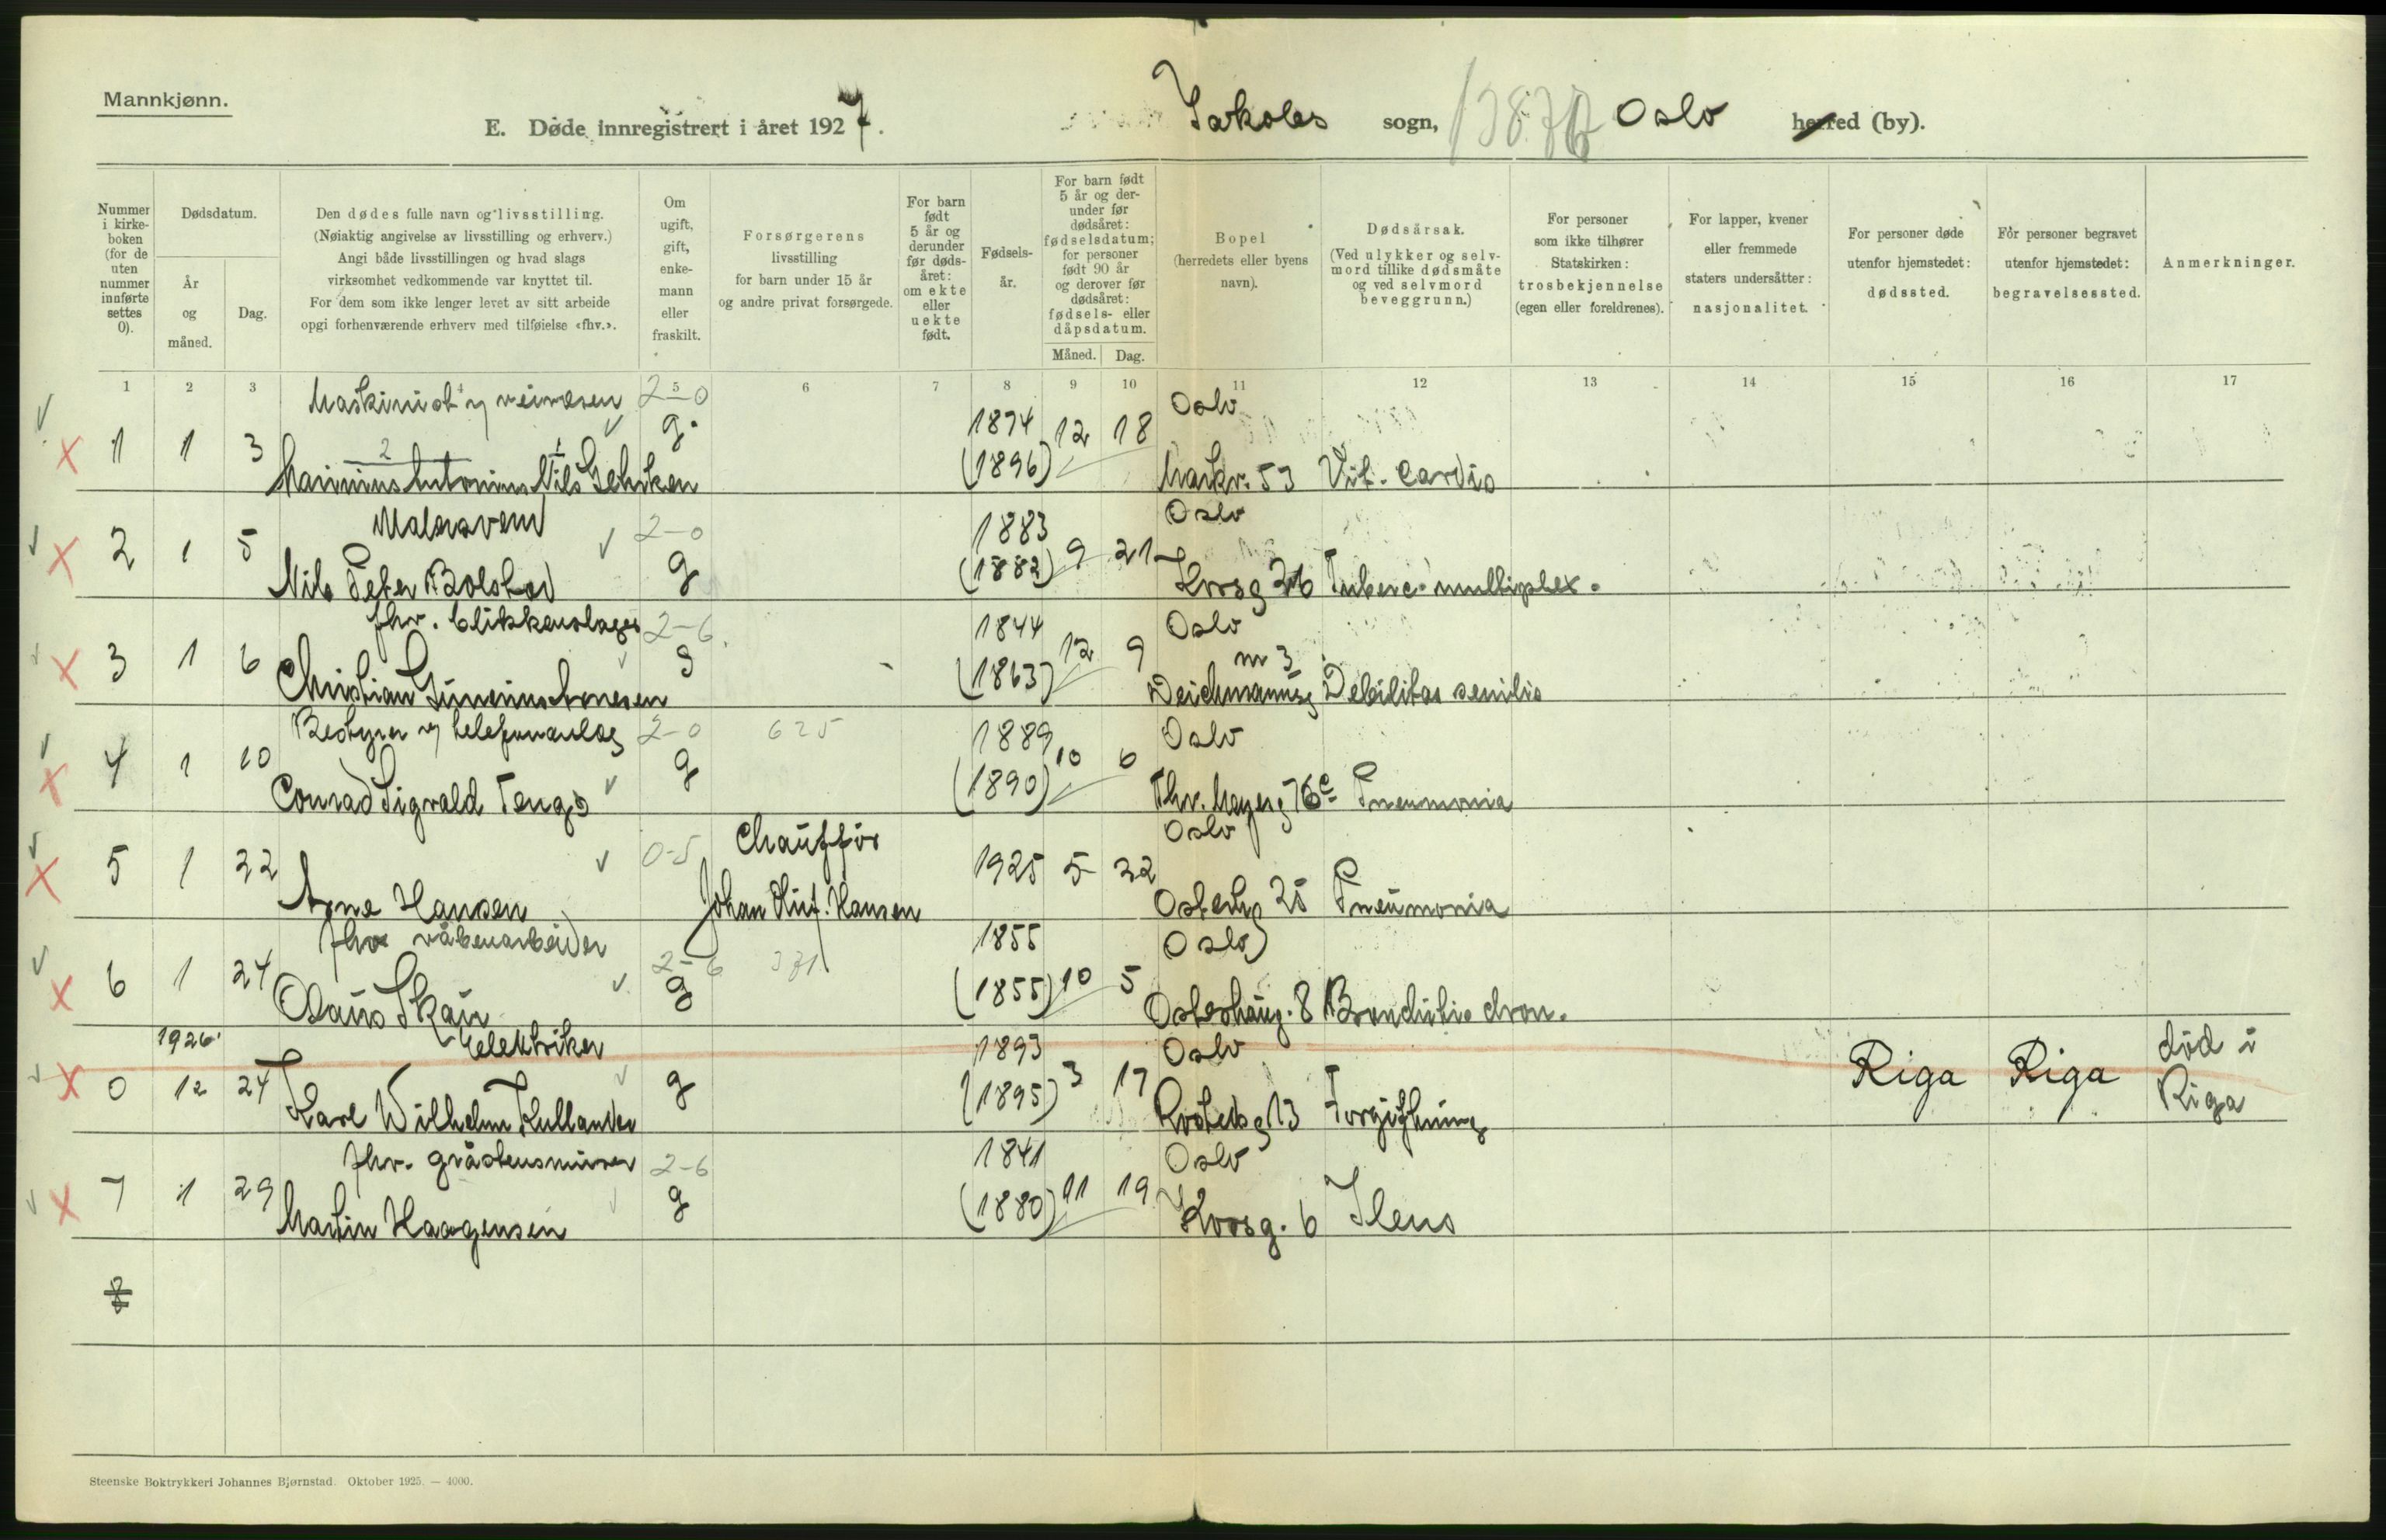 Mannkjønn.
E. Døde innregistrert i året 1927.
Jakobs sogn, Oslo herred (by).
Nummer i kirke-boken (for de uten nummer innførte settes 0).
Dødsdatum.
År og måned.
Dag.
Den dødes fulle navn og livsstilling.
(Nøiaktig angivelse av livsstilling og erhverv.)
Angi både livsstillingen og hvad slags
virksomhet vedkommende var knyttet til.
For dem som ikke lenger levet av sitt arbeide
opgi forhenværende erhverv med tilføielse «fhv.».
Om ugift, gift, enke-mann eller fraskilt.
Forsørgerens
livsstilling
for barn under 15 år
og andre privat forsørgede.
For barn født 5 år og derunder før døds-året: om ekte eller uekte født.
Fødsels-år.
For barn født 5 år og der-under før dødsåret: fødselsdatum; for personer født 90 år og derover før dødsåret: fødsels- eller dåpsdatum.
Måned. Dag.
Bopel
(herredets eller byens
navn).
Dødsårsak.
(Ved ulykker og selv-
mord tillike dødsmåte
og ved selvmord
beveggrunn.)
For personer
som ikke tilhører
Statskirken:
trosbekjennelse
(egen eller foreldrenes).
For lapper, kvener
eller fremmede
staters undersåtter:
nasjonalitet.
For personer døde
utenfor hjemstedet:
dødssted.
For personer begravet
utenfor hjemstedet:
begravelsessted.
Anmerkninger.
1 2 3 5 6 7 8 9 10 11 12 13 14 15 16 17
Maskinist veivesen 2-0 1874 Oslo
1 1 3 Antonius Nils g. (1896) 12 18 Markv. 53 Vit. cordis
Malersvend 2-0 1883 Oslo
2 1 5 Nils Peter Bolstad g (1882) 9 21 Korsg 26 Tuberc. multiplex.
fhv. blikkenslager 2-6 1844 Oslo
3 1 6 Christian g (1863) 12 9 nr 3 Deichmannsg Debilitas senilis
Bestyrer 2-0 625 1889 Oslo
4 1 10 Conrad Sigvald Tengs g (1890) 10 6 Thv. Meyersg 76c Pneumonia
0-5 Chauffør Oslo
5 1 22 Arne Hansen Johan Hansen 1925 5 22 Osterhg 25 Pneumonia
fhv våbenarbeider 2-6 1855 Oslo
6 1 24 Olaus Skau g (1855) 10 5 Osterhausg. 8 Bronchitis chron.
1926 elektriker 1893 Oslo
0 12 24 Karl Wilhelm Kullander g (1895) 3 17 13 Forgiftning Riga Riga død i Riga
fhv. gråstensmurer 2-6 1841 Oslo
7 1 29 Martin Haagensen g (1880) 11 19 Korsg. 6 Ileus
8
Steenske Boktrykkeri Johannes Bjørnstad. Oktober 1925. — 4000.